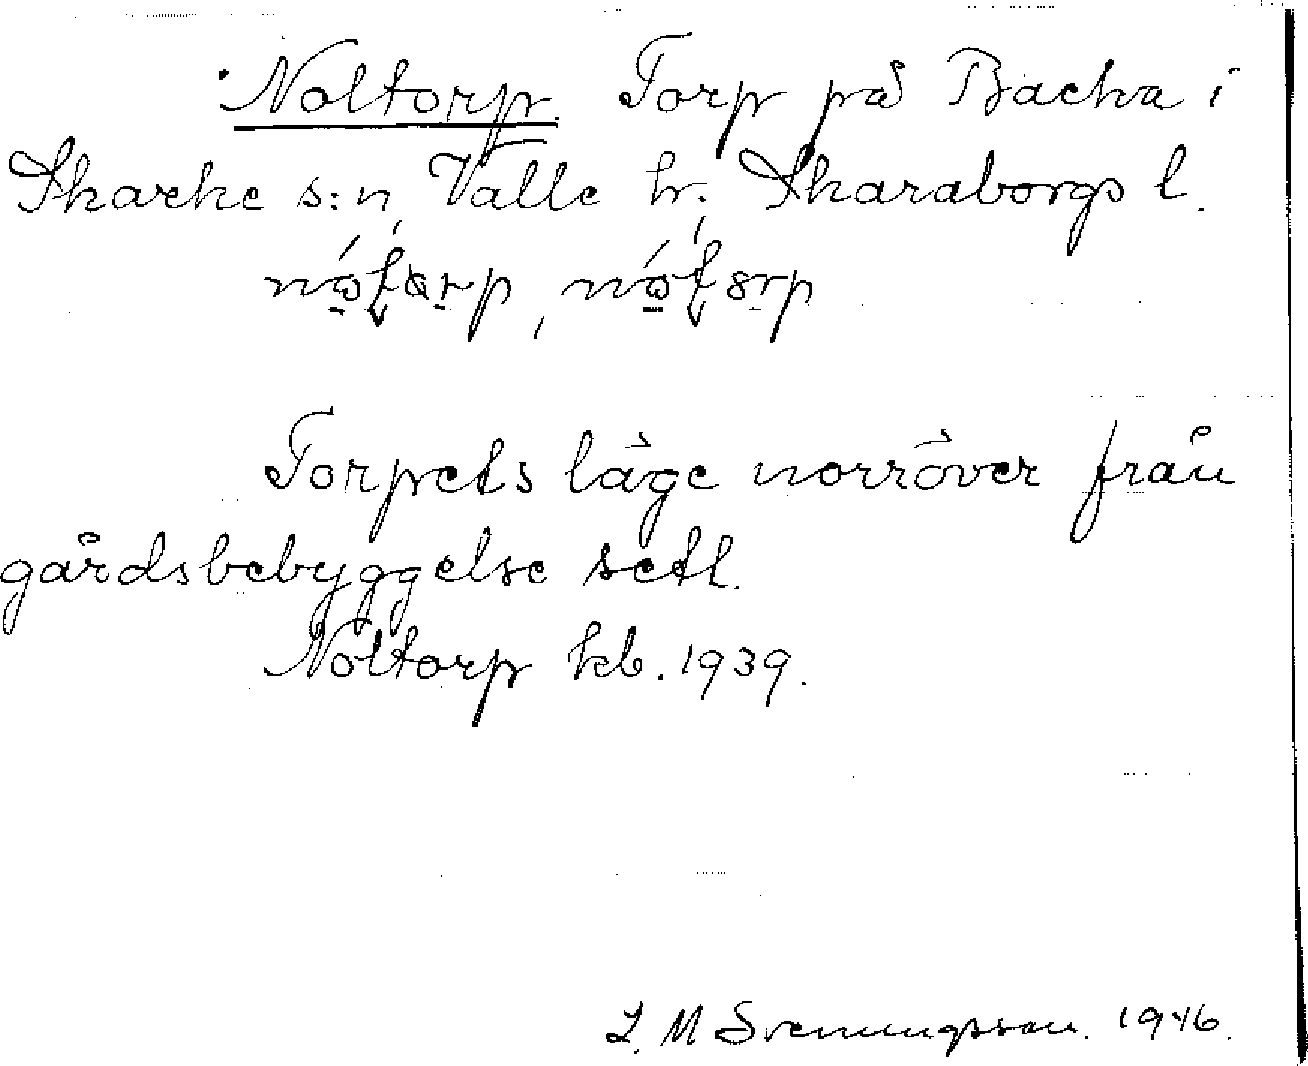 Noltorp. Torp på Backa i
Skarke s:n, Valle hr., Skaraborgs l.
Torpets läge norröver från
gårdsbebyggelse sett.
Noltorp kb. 1939.
L. M Svenungsson. 1946.